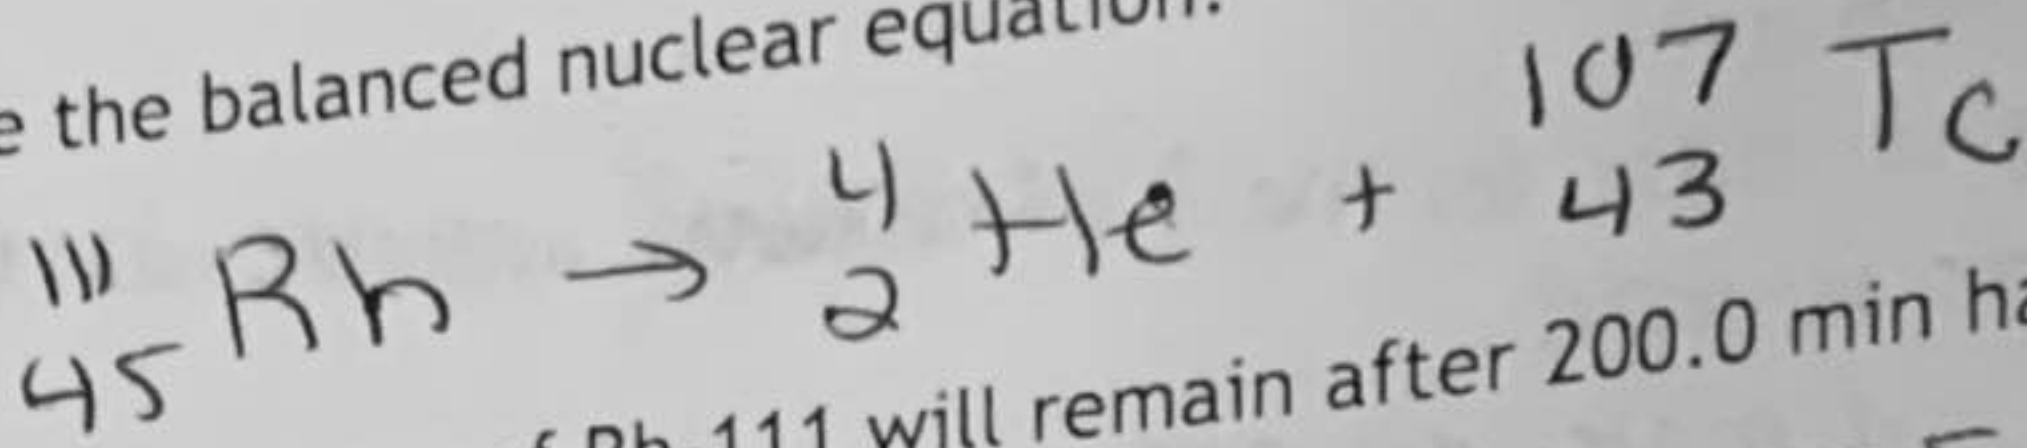 the balanced nuclear equation.
111 45 Rh → 4 2 He + 107 43 Tc
Rh-111 will remain after 200.0 min